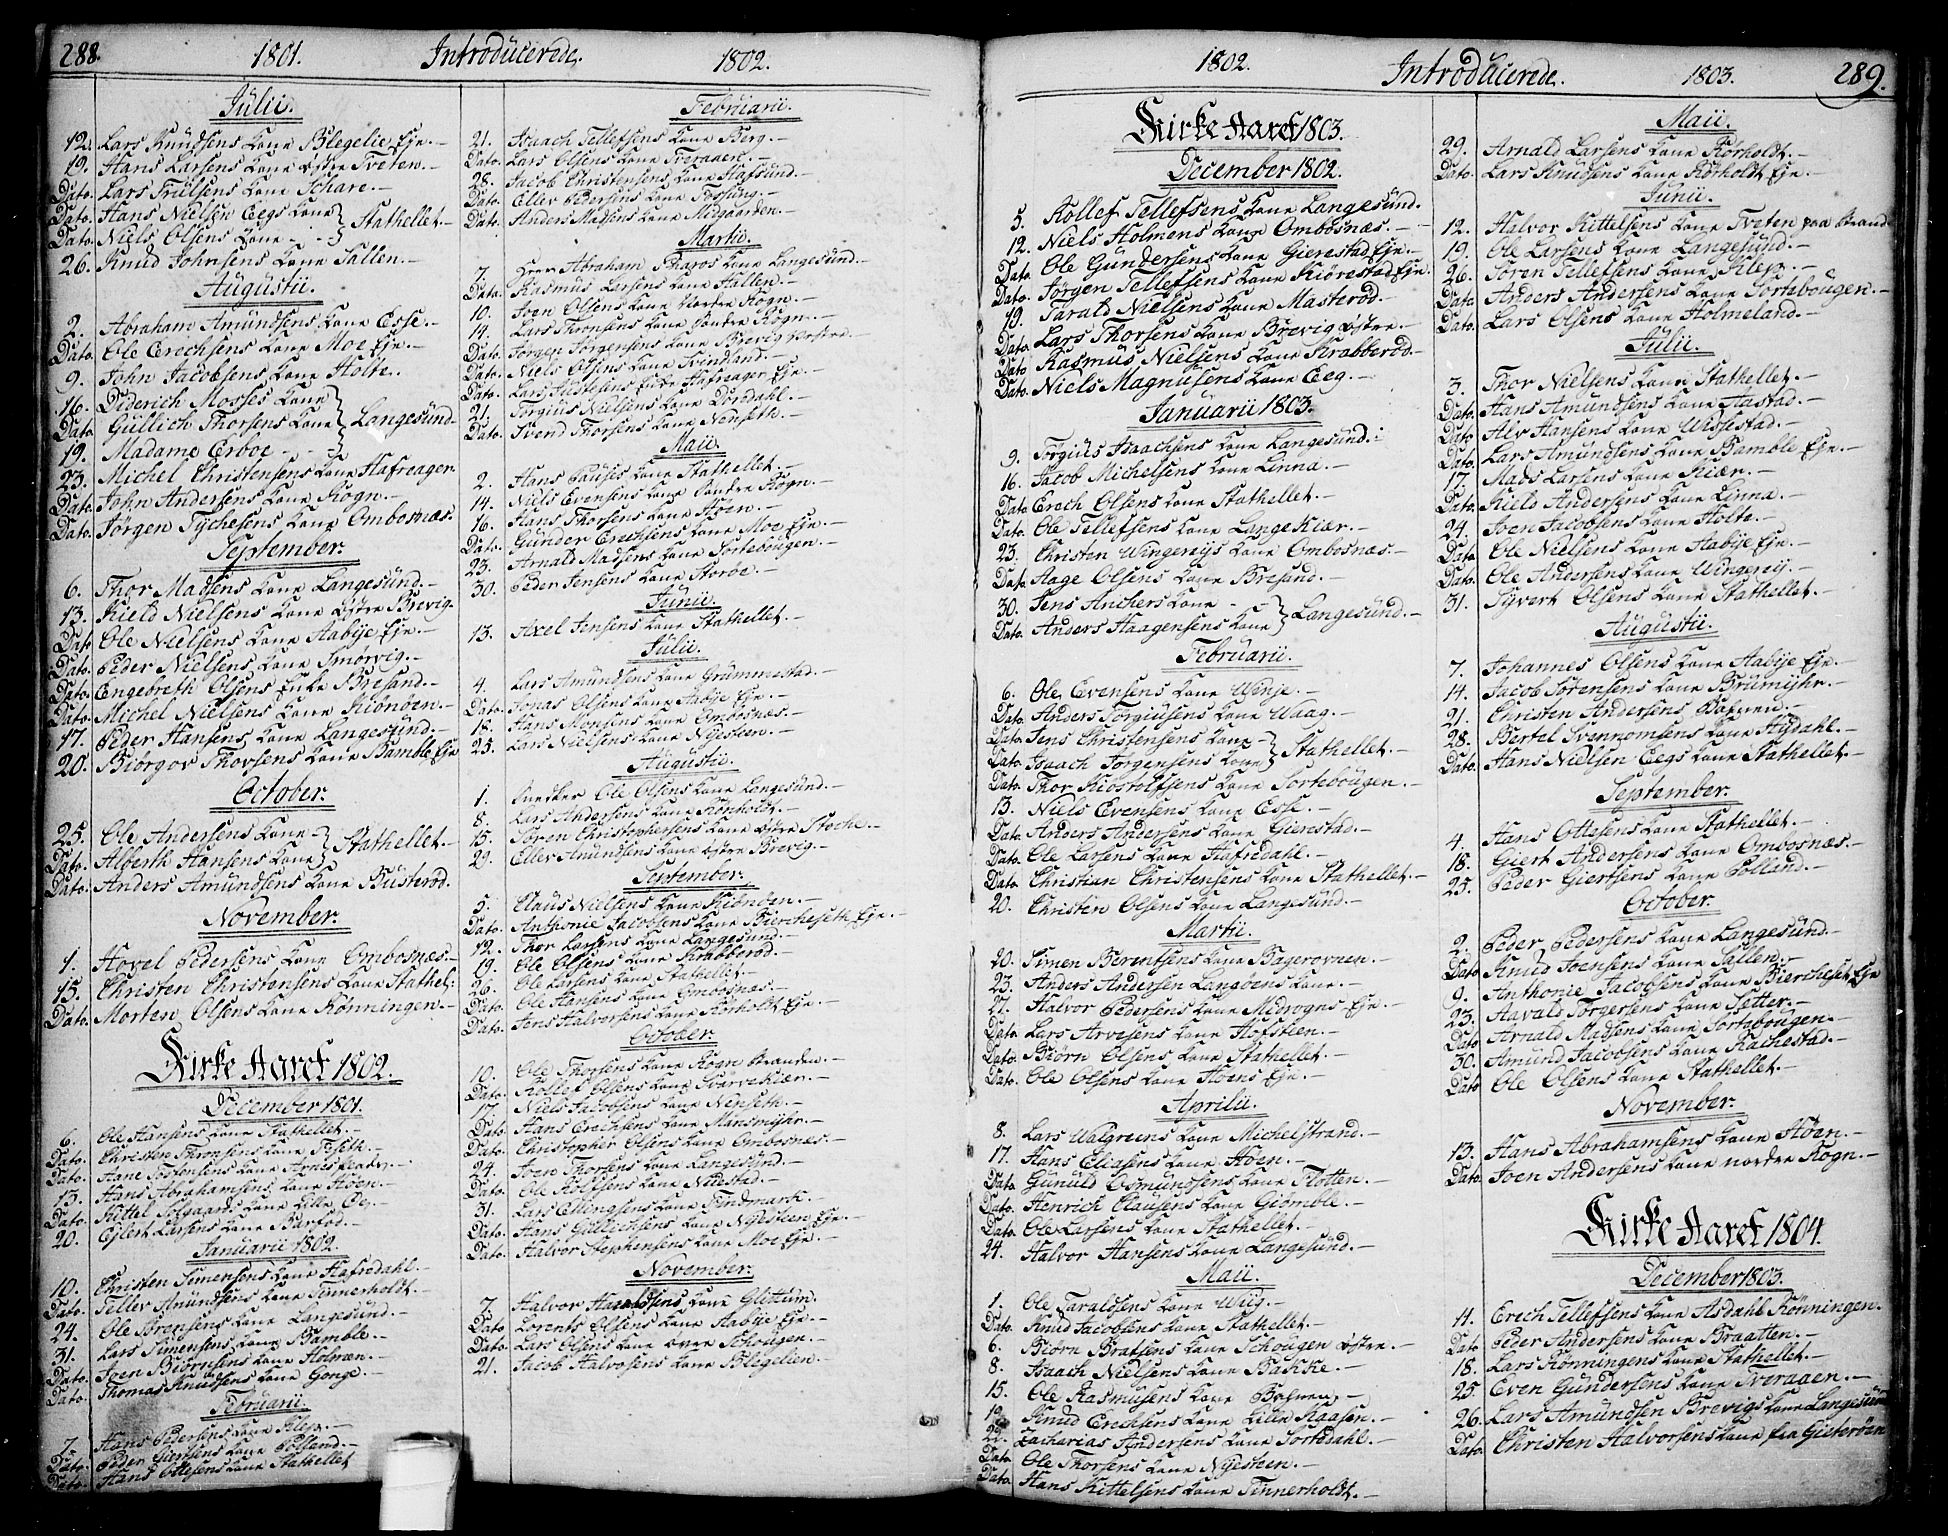 288. 1801. Introducerede. 1802.
Julii.
12. Lars Knudsens Kone Blegelie Eje.
19. Hans Larsens Kone østre Tveten.
Dato. Lars Trulsens Kone Schare.
Dato. Hans Nielsen Eegs Kone } Stathellet.
Dato. Niels Olsens Kone
26. Knud Johnsens Kone Sallen.
Augustii.
2. Abraham Amundsens Kone Esse.
Dato. Ole Erechsens Kone Moe Eje.
9. John Jacobsens Kone Holte.
16. Diderich Mosses Kone } Langesund.
Dato. Gullich Thorsens Kone
19. Madame Erboe
23. Michel Christensens Kone Hafreager.
Dato. John Andersens Kone Rogn.
Dato. Jørgen Tychesens Kone Ombosnæs.
September.
6. Thor Madsens Kone Langesund.
13. Kield Nielsens Kone østre Brevig.
Dato Ole Nielsens Kone Aabye Eje.
Dato. Peder Nielsens Kone Smørvig.
Dato. Engebreth Olsens Enke Bresand.
Dato. Michel Nielsens Kone Kionøen.
17. Peder Hansens Kone Langesund.
20. Biørgov Thorsens Kone Bamble Eje
October.
25. Ole Andersens Kone } Stathellet.
Dato. Alberth Hansens Kone
Dato. Anders Amundsens Kone Busterød.
November.
1. Hovel Pedersens Kone Ombosnæs.
15. Christen Christensens Kone Stathel:
Dato. Morten Olsens Kone Rønningen.
Kirke Aaret 1802.
December 1801.
6. Ole Hansens Kone Stathellet.
Dato. Christen Thronsens Kone Feseth.
Dato. Aane Tostensens Kone
13. Hans Abrahamsens Kone Høen.
Dato. Kittel Solgaards Kone Lille Øe.
20. Ejlert Larsens Kone Barfod.
Januarii 1802.
10. Christen Simensens Kone Hafredahl.
Dato. Tellev Anundsens Kone Tinnerholdt.
24. Ole Brensens Kone Langesund.
31. Lars Simensens Kone Bamble.
Dato. Joen Biørnsens Kone Holmen.
Dato. Thomas Knudsens Kone Gonge.
Februarii.
7. Hans Pedersens Kone Klep.
Dato. Peder Giersens Kone Polland.
Dato. Hans Ottesens Kone Stathellet
Februarii.
21. Isaach Tellefsens Kone Berg.
Dato. Lars Olsens Kone Tveraaen.
28. Jacob Christensens Kone Hafsund.
Dato. Ellev Pedersens Kone Fossing.
Dato. Anders Madsens Kone Miigaarden.
Martii.
7. Herr Abraham Pharos Kone Langesund.
Dato. Rasmus Larsens Kone Hallen.
10. Joen Olsens Kone Nordre Rogn.
14. Lars Thronsens Kone Søndre Rogn.
Dato. Jørgen Jørgensens Kone Brevig
Dato. Niels Olsens Kone Tvindland.
Dato. Lars Hustebens Enke Hafreager Eje.
21. Torgius Nielsens Kone Dørdahl.
Dato. Svend Thorsens Kone Nenseth.
Maii.
2. Hans Pauses Kone Stathellet.
14. Niels Evensens Kone Søndre Rogn.
16. Hans Thorsens Kone Høen.
Dato. Gunder Erechsens Kone Moe Eje.
23. Arnald Madsens Kone Sortebougen.
30. Peder Jensens Kone Storøe.
Junii.
13. Axel Jensens Kone Stathellet.
Julii.
4. Lars Amundsens Kone Grummestad.
Dato. Jonas Olsens Kone Aabye Eje.
18. Hans Monsens Kone Ombosnæs.
25. Lars Nielsens Kone Nyesteen.
Augustii.
1. Snedker Ole Olsens Kone Langesund.
8. Lars Andersens Kone Rørholdt.
15. Søren Christophersens Kone østre Stoche.
29. Ellev Amundsens Kone østre Brevig.
September.
5. Claus Nielsens Kone Kionøen.
Dato. Anthonie Jacobsens Kone Biercheseth Eje.
12. Thor Larsens Kone Langesund.
19. Ole Olsens Kone Krabberød.
26. Ole Larsens Kone Stathellet.
Dato. Ole Hansens Kone Ombosnæs.
Dato. Jens Halvorsens Kone Rørholdt Eje.
October.
10. Ole Thorsens Kone Rogn Branden.
Dato. Kollef Olsens Kone Svartekiær.
17. Niels Jacobsens Kone Nenseth.
Dato. Hans Erechsens Kone Mansmyhr.
Dato. Christopher Olsens Kone Ombosnæs.
24. Joen Thorsens Kone Langesund.
Dato. Ole Rolfsens Kone Nedestad.
31. Lars Ellingsens Kone Findmark.
Dato. Hans Gullechsens Kone Nyesteen Eje.
Dato. Halvor Stephensens Kone Moe Eje.
November.
7. Halvor Haraldsens Kone Glittum.
Dato Lorents Olsens Kone Aabye Eje.
Dato. Lars Olsens Kone øvre Schougen.
21. Jacob Halvorsens Kone Blegelien.
1802. Introducerede. 1803. 289.
Kirke Aaret 1803.
December 1802.
5. Kollef Tellefsens Kone Langesund.
12. Niels Holmens Kone Ombosnæs.
Dato. Ole Gundersens Kone Gierestad Eje.
Dato. Jørgen Tellefsens Kone Kiørestad Eje.
19. Tarald Nielsens Kone Masterød.
Dato. Lars Thorsens Kone Brevig østre.
Dato Rasmus Nielsens Kone Krabberød.
Dato. Niels Magnusens Kone Eeg.
Januarii 1803.
9. Torgius Isaachsens Kone Langesund.
16. Jacob Michelsens Kone Linna.
Dato Erech Olsens Kone Stathellet.
Dato. Ole Tellefsens Kone Langekiær.
23. Christen Wingereijs Kone Ombosnæs.
Dato Aage Olsens Kone Bresand.
30. Jens Anchers Kone } Langesund.
Dato. Anders Haagensens Kone
Februarii.
6. Ole Evensens Kone Winje.
Dato. Anders Torgiusens Kone Waag.
Dato. Jens Christensens Kone } Stathellet.
Dato. Isaach Jørgensens Kone
Dato. Thor Kiostolfsens Kone Sortebougen.
13. Niels Evensens Kone Esse.
Dato. Anders Andersens Kone Gierestad.
Dato. Ole Larsens Kone Hafredahl.
Dato. Christian Christensens Kone Stathellet.
20. Christen Olsens Kone Langesund.
Martii.
20. Simen Berentsens Kone Bagerovnen.
23. Anders Andersen Langøens Kone.
27. Halvor Pedersens Kone Midvogns Eje.
Dato. Lars Arvesens Kone Hofstien.
Dato. Biørn Olsens Kone Stathellet.
Dato. Ole Olsens Kone Høens Eje.
Aprilii.
8. Lars Walgreens Kone Michelstrand.
17. Hans Eliasens Kone Høen.
Dato. Gunuld Osmundsens Kone Flotten.
Dato. Henrich Clausens Kone Giømble.
Dato. Ole Larsens Kone Stathellet.
24. Halvor Hansens Kone Langesund.
Maii.
1. Ole Taraldsens Kone Wiig.
Dato. Knud Jacobsens Kone Stathellet.
6. Biørn Bratsens Kone Schougen østre.
8. Isaach Nielsens Kone Bakke.
15. Ole Rasmusens Kone Bognen.
19. Knud Erichsens Kone Lille Kaasen.
22. Zacharias Andersens Kone Sortedahl.
Dato. Ole Thorsens Kone Nyesteen.
Dato. Hans Kittelsens Kone Tinnerholdt.
Maii.
29. Arnald Larsens Kone Rørholdt.
Dato. Lars Knudsens Kone Rørholdt Eje.
Junii.
12. Halvor Kittelsens Kone Tveten paa Brand
19. Ole Larsens Kone Langesund.
26. Søren Tellefsens Kone Klep.
Dato. Anders Andersens Kone Sortebougen.
Dato. Lars Olsens Kone Holmeland.
Julii.
3. Thor Nielsens Kone Stathellet.
Dato. Hans Amundsens Kone Aastad.
Dato. Alv Hansens Kone Wissestad.
Dato. Lars Amundsens Kone Bamble Eje.
17. Mads Larsens Kone Kiær.
Dato. Kield Andersens Kone Linna.
24. Joen Jacobsens Kone Holte.
Dato. Ole Nielsens Kone Aabye Eje.
Dato. Ole Andersens Kone Wingereij.
31. Syvert Olsens Kone Stathellet.
Augustii.
7. Johannes Olsens Kone Aabije Eje.
14. Jacob Sørensens Kone Brumyhr.
21. Christen Andersens Bognen.
28. Bertel Svennomsens Kone Høydahl.
Dato. Hans Nielsen Eegs Kone Stathellet.
September.
4. Hans Ottesens Kone Stathellet.
18. Giert Andersens Kone Ombosnæs.
25. Peder Giertsens Kone Polland.
October.
2. Peder Pedersens Kone Langesund.
Dato. Knud Joensens Kone Sallen.
9. Anthonie Jacobsens Kone Biercheset Eje
23. Aavald Torgersens Kone Setter.
Dato Arnald Madsens Kone Sortebougen.
30. Amund Jacobsens Kone Rachestad.
Dato Ole Olsens Kone Stathellet.
November.
13. Hans Abrahamsens Kone Høen.
Dato. Joen Andersens Kone nordre Rogn.
Kirke Aaret 1804.
December 1803.
11. Erech Tellefsens Kone Asdahl Rønningen.
Dato Peder Andersens Kone Braatten.
18. Lars Rønningens Kone Stathellet.
25. Even Gundersens Kone Tveraaen.
26. Lars Amundsen Brevigs Kone Langesun
Dato. Christen Halvorsens Kone fra Gieterøen